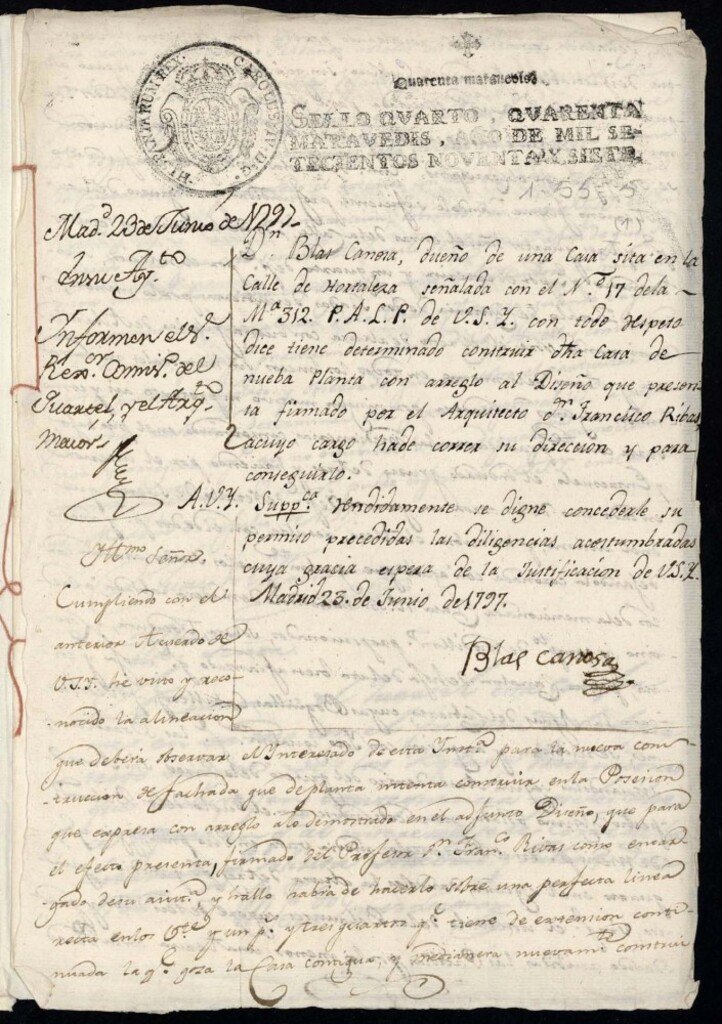 HISPANIARUM REX. CAROLUS IV D. G.
Quarenta maravedis.
SELLO QVARTO, QVARENTA
MARAVEDIS, AÑO DE MIL SE-
TECIENTOS NOVENTA Y SIETE.
Mad.d 23 de Junio de 1797.
En su Ay.to
Informen el S.r
Rex.or Comis.o del
Quartel, y el Arq.to
maior.
D.n Blas Canosa, dueño de una Casa sita en la
Calle de Hortaleza señalada con el N.º 17 de la
M.a 312. P. A. L. P. de V.S.Y. con todo respeto
dice tiene determinado construir dha Casa de
nueba Planta con arreglo al Diseño que presen-
ta firmado por el Arquitecto d.n Francisco Ribas
a cuyo cargo hade correr su direccion y para
conseguirlo.
A.V.Y. Supp.ca rendidamente se digne concederle su
permiso precedidas las diligencias acostumbradas
cuya gracia espera de la Justificacion de V.S.Y.
Madrid 23. de Junio de 1797.
Blas Canosa
Yll.mo Señor.
Cumpliendo con el
anterior Acuerdo de
V.S.Y. he visto y reco-
nocido la alineacion
que deberá observar el Interesado de esta Inst.a para la nueva cons-
truccion de fachada que de planta intenta construir en la Posesion
que expresa con arreglo a lo demostrado en el adjunto Diseño, que para
el efecto presenta, firmado del Profesor D.n Fran.co Ribas como encar-
gado de su, y hallo habrá de hacerlo sobre una perfecta linea
recta en los y un p.e y tres quartos q.e tiene de extension conti-
nuada la q.e goza la Casa contigua, y medianera nuevam.te construi